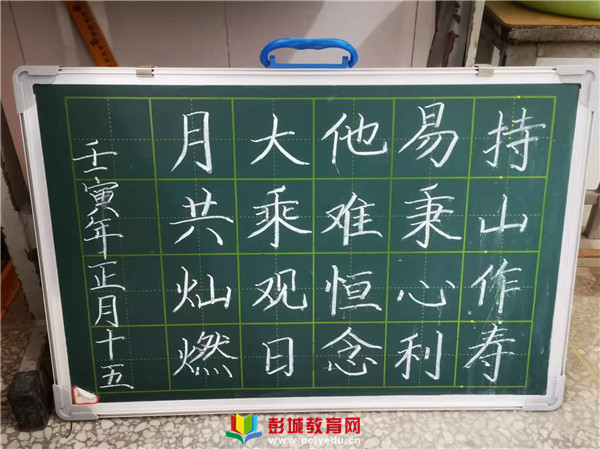 持山作寿
易秉心利
他难恒念
大乘观日
月共灿燃
壬寅年正月十五
彭城教育网
www.pcjyedu.cn